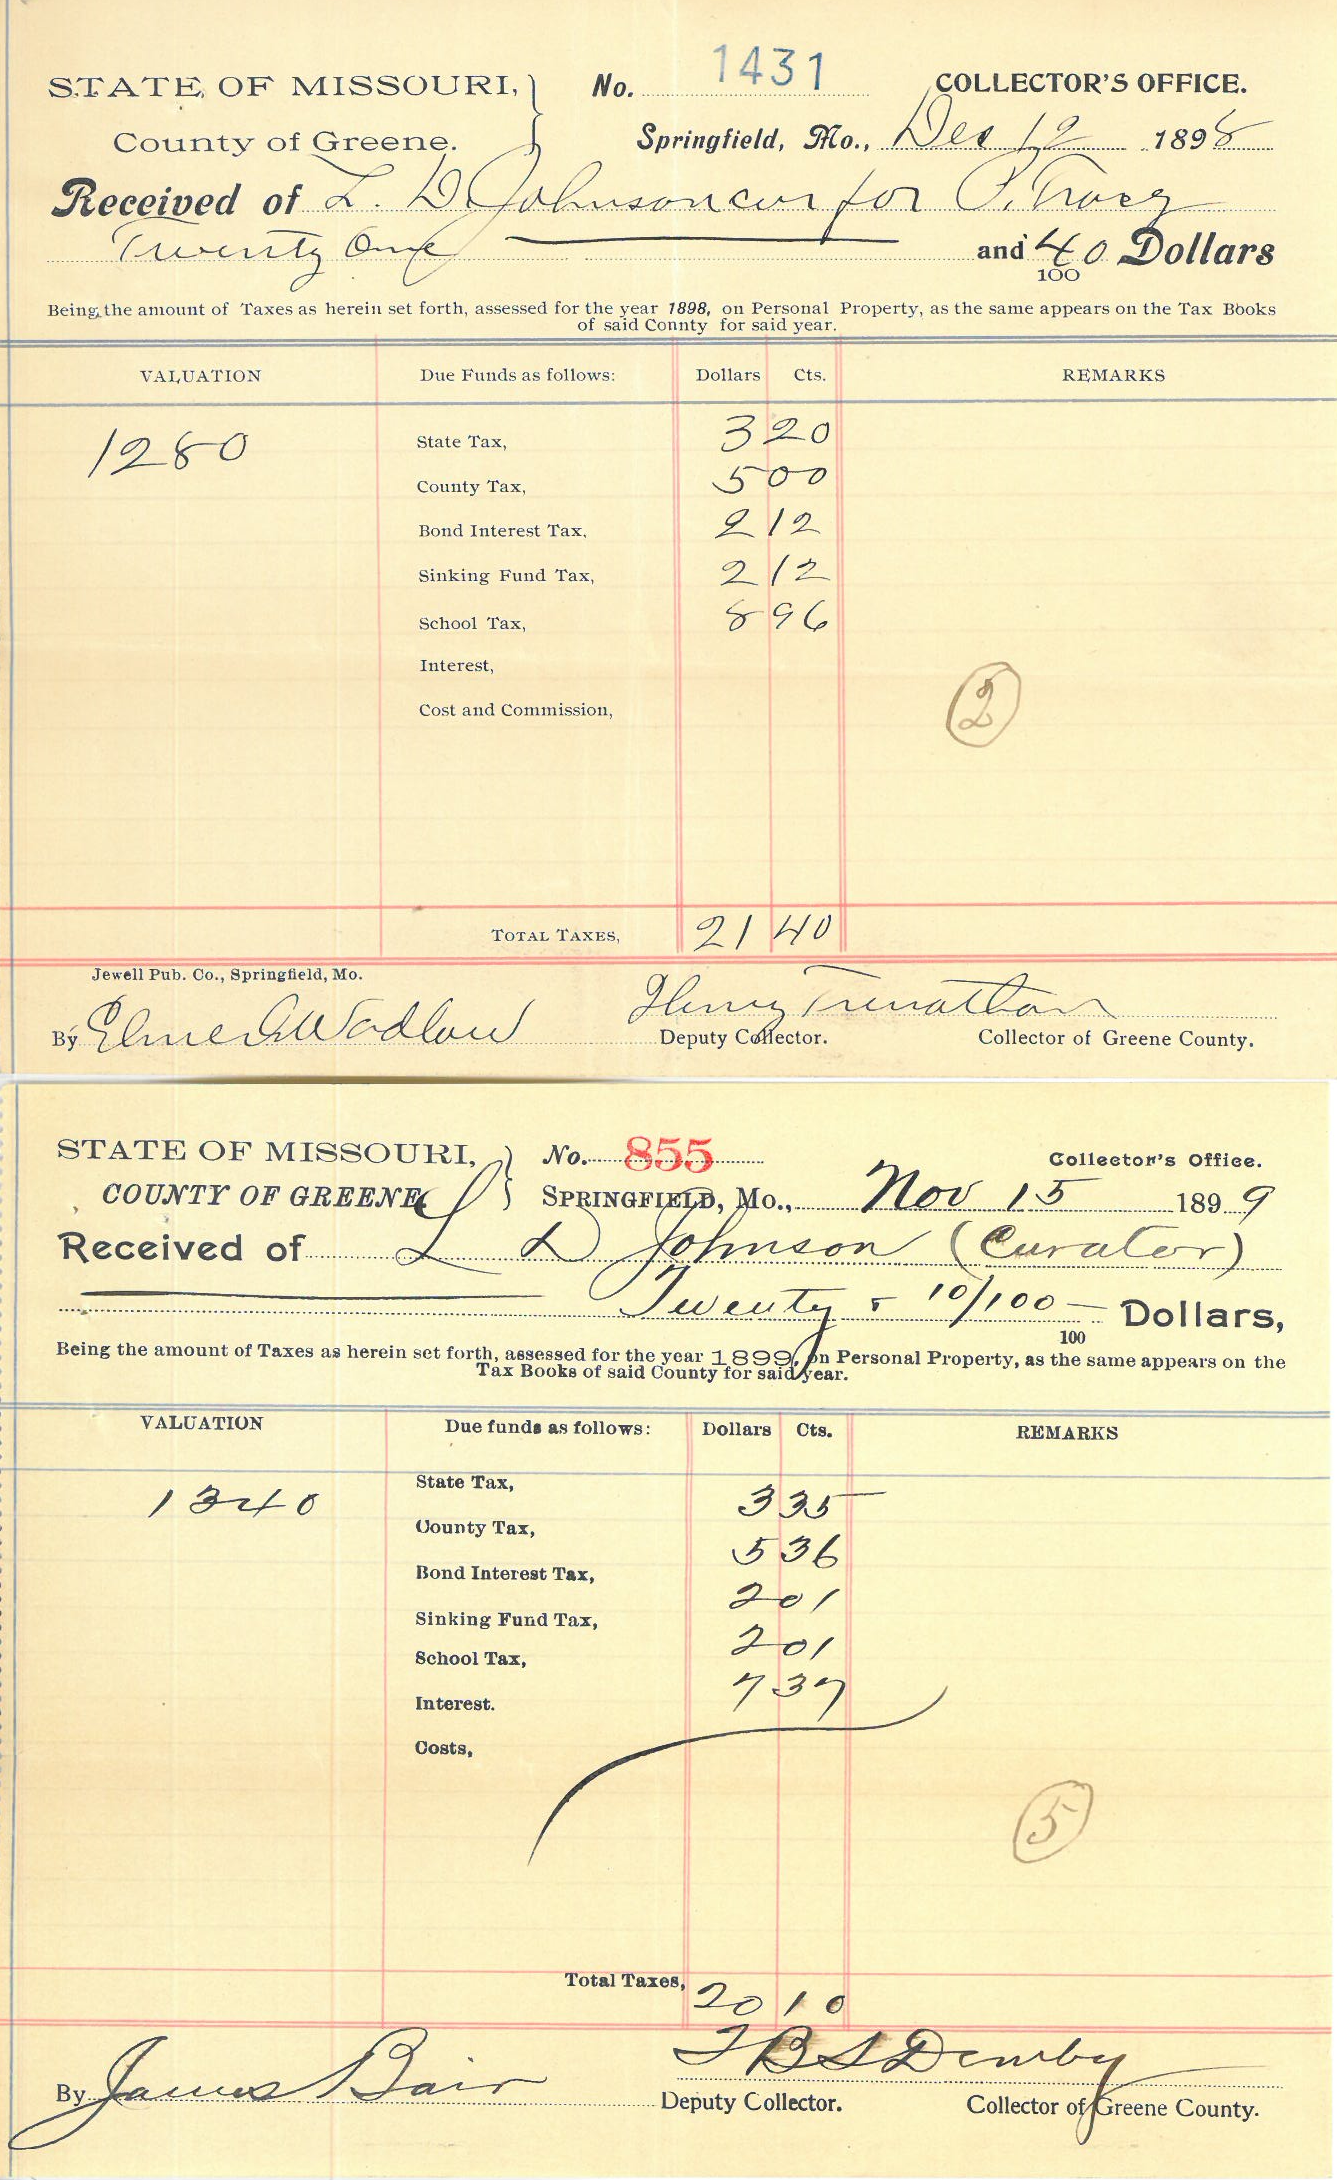 STATE OF MISSOURI, No. 1431 COLLECTOR'S OFFICE.
County of Greene. Springfield, Mo., Dec 12 1898
Received of L. D. Johnson cur for P. Tracy
Twenty One and 40/100 Dollars
Being the amount of Taxes as herein set forth, assessed for the year 1898, on Personal Property, as the same appears on the Tax Books
of said Connty for said year.
VALUATION Due Funds as follows: Dollars Cts. REMARKS
1280 State Tax, 3 20
County Tax, 5 00
Bond Interest Tax, 2 12
Sinking Fund Tax, 2 12
School Tax, 8 96
Interest,
Cost and Commission,
2
TOTAL TAXES, 21 40
Jewell Pub. Co., Springfield, Mo.
By Elmer A Wadlow Henry Trenatham
Deputy Collector. Collector of Greene County.
STATE OF MISSOURI, No. 855 Collector's Office.
COUNTY OF GREENE SPRINGFIELD, Mo., Nov 15 1899
Received of L D Johnson (Curator)
Twenty & 10/100 — Dollars,
100
Being the amount of Taxes as herein set forth, assessed for the year 1899, on Personal Property, as the same appears on the
Tax Books of said County for said year.
VALUATION Due funds as follows: Dollars Cts. REMARKS
1340 State Tax, 3 35
County Tax, 5 36
Bond Interest Tax, 2 01
Sinking Fund Tax, 2 01
School Tax, 7 37
Interest.
Costs,
5
Total Taxes, 20 10
By James Bair
Deputy Collector. Collector of Greene County.